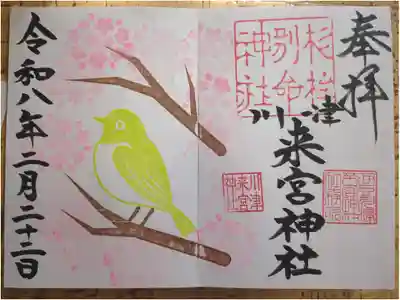 奉拝
杉桙
別命
神社
川津
来宮神社
川津
来宮
神社
令和八年二月二十二日